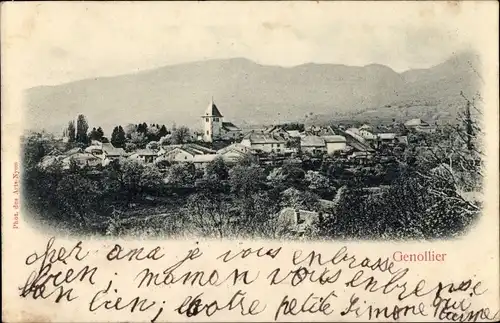 Genollier
Phot. des Arts-Nyon
cher ama je vous embrasse
bien maman vous embrasse
bien bien, votre petite Simone qui
vous aime